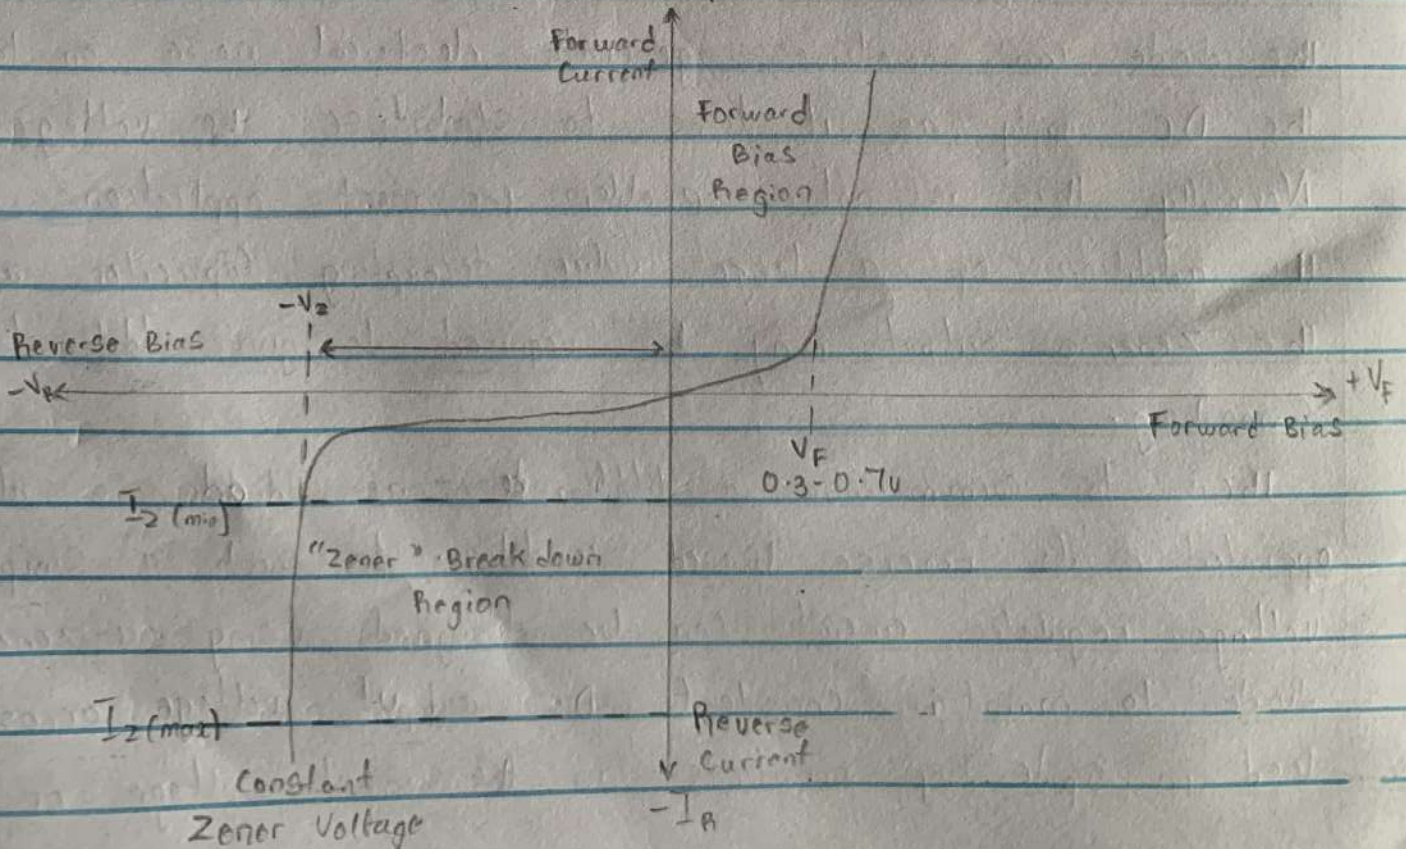 Forward
Current
Forward
Bias
Region
-Vz
Reverse Bias
-VR
+VF
Forward Bias
VF
0.3-0.7v
Iz (min)
"Zener" Breakdown
Region
Iz (max)
Reverse
Current
Constant
Zener Voltage
-IR